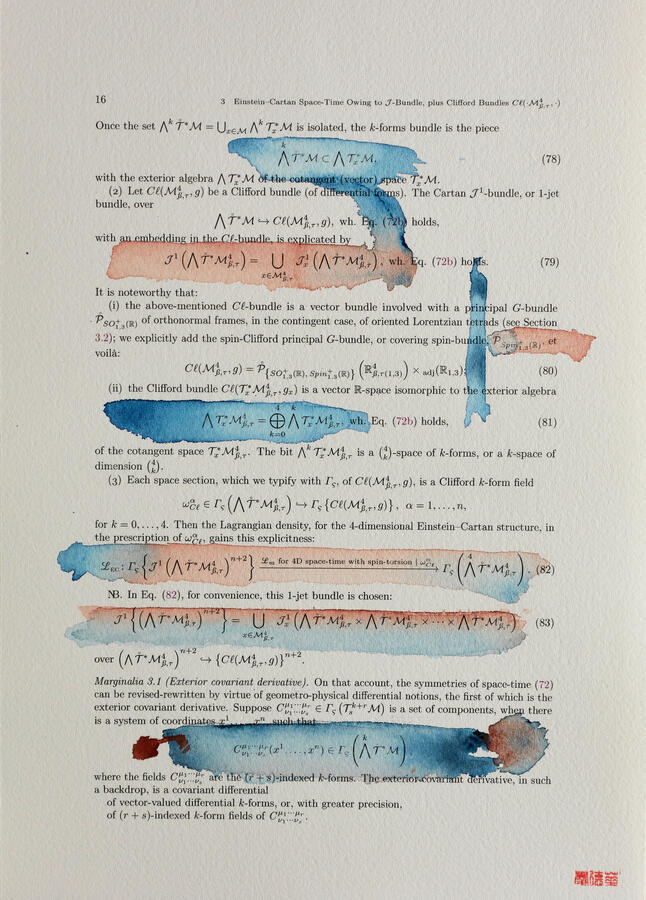 16 3 Einstein–Cartan Space-Time Owing to 𝒥-Bundle, plus Clifford Bundles Cℓ(·ℳ⁴_{β,τ}, ·)
Once the set ⋀ᵏ 𝒯̊*ℳ = ⋃_{x∈ℳ} ⋀ᵏ 𝒯ₓ*ℳ is isolated, the k-forms bundle is the piece
⋀ᵏ 𝒯̊*ℳ ⊂ ⋀ 𝒯ₓ*ℳ, (78)
with the exterior algebra ⋀ 𝒯ₓ*ℳ of the cotangent (vector) space 𝒯ₓ*ℳ.
(2) Let Cℓ(ℳ⁴_{β,τ}, g) be a Clifford bundle (of differential forms). The Cartan 𝒥¹-bundle, or 1-jet
bundle, over
⋀ 𝒯̊*ℳ ↪ Cℓ(ℳ⁴_{β,τ}, g), wh. Eq. (72b) holds,
with an embedding in the Cℓ-bundle, is explicated by
𝒥¹ (⋀ 𝒯̊*ℳ⁴_{β,τ}) = ⋃_{x∈ℳ⁴_{β,τ}} 𝒥¹ₓ (⋀ 𝒯̊*ℳ⁴_{β,τ}), wh. Eq. (72b) holds. (79)
It is noteworthy that:
(i) the above-mentioned Cℓ-bundle is a vector bundle involved with a principal G-bundle
𝒫̊_{SO⁺_{1,3}(ℝ)} of orthonormal frames, in the contingent case, of oriented Lorentzian tetrads (see Section
3.2); we explicitly add the spin-Clifford principal G-bundle, or covering spin-bundle, 𝒫̊_{Spin⁺_{1,3}(ℝ)}, et
voilà:
Cℓ(ℳ⁴_{β,τ}, g) = 𝒫̊_{{SO⁺_{1,3}(ℝ), Spin⁺_{1,3}(ℝ)}} (ℝ⁴_{β,τ(1,3)}) × adj(ℝ_{1,3}); (80)
(ii) the Clifford bundle Cℓ(𝒯ₓ*ℳ⁴_{β,τ}, gₓ) is a vector ℝ-space isomorphic to the exterior algebra
⋀ 𝒯ₓ*ℳ⁴_{β,τ} = ⨁_{k=0}^{4} ⋀ᵏ 𝒯ₓ*ℳ⁴_{β,τ}, wh. Eq. (72b) holds, (81)
of the cotangent space 𝒯ₓ*ℳ⁴_{β,τ}. The bit ⋀ᵏ 𝒯ₓ*ℳ⁴_{β,τ} is a (4 k)-space of k-forms, or a k-space of
dimension (4 k).
(3) Each space section, which we typify with Γ_ς, of Cℓ(ℳ⁴_{β,τ}, g), is a Clifford k-form field
ω^α_{Cℓ} ∈ Γ_ς (⋀ 𝒯̊*ℳ⁴_{β,τ}) ↪ Γ_ς {Cℓ(ℳ⁴_{β,τ}, g)}, α = 1, . . . , n,
for k = 0, . . . , 4. Then the Lagrangian density, for the 4-dimensional Einstein–Cartan structure, in
the prescription of ω^α_{Cℓ}, gains this explicitness:
ℒ_{EC} : Γ_ς {𝒥¹ (⋀ 𝒯̊*ℳ⁴_{β,τ})^{n+2}} ℒ_m for 4D space-time with spin-torsion | ω^α_{Cℓ} → Γ_ς (⋀⁴ 𝒯̊*ℳ⁴_{β,τ}). (82)
NB. In Eq. (82), for convenience, this 1-jet bundle is chosen:
𝒥¹ {(⋀ 𝒯̊*ℳ⁴_{β,τ})^{n+2}} = ⋃_{x∈ℳ⁴_{β,τ}} 𝒥¹ₓ (⋀ 𝒯̊*ℳ⁴_{β,τ} × ⋀ 𝒯̊*ℳ⁴_{β,τ} × ··· × ⋀ 𝒯̊*ℳ⁴_{β,τ}) (83)
over (⋀ 𝒯̊*ℳ⁴_{β,τ})^{n+2} ↪ {Cℓ(ℳ⁴_{β,τ}, g)}^{n+2}.
Marginalia 3.1 (Exterior covariant derivative). On that account, the symmetries of space-time (72)
can be revised-rewritten by virtue of geometro-physical differential notions, the first of which is the
exterior covariant derivative. Suppose C^{μ₁···μᵣ}_{ν₁···νₛ} ∈ Γ_ς (𝒯ₛ^{k+r}ℳ) is a set of components, when there
is a system of coordinates x¹, . . . , xⁿ such that
C^{μ₁···μᵣ}_{ν₁···νₛ}(x¹, . . . , xⁿ) ∈ Γ_ς (⋀ᵏ 𝒯̊*ℳ)
where the fields C^{μ₁···μᵣ}_{ν₁···νₛ} are the (r + s)-indexed k-forms. The exterior covariant derivative, in such
a backdrop, is a covariant differential
of vector-valued differential k-forms, or, with greater precision,
of (r + s)-indexed k-form fields of C^{μ₁···μᵣ}_{ν₁···νₛ}.